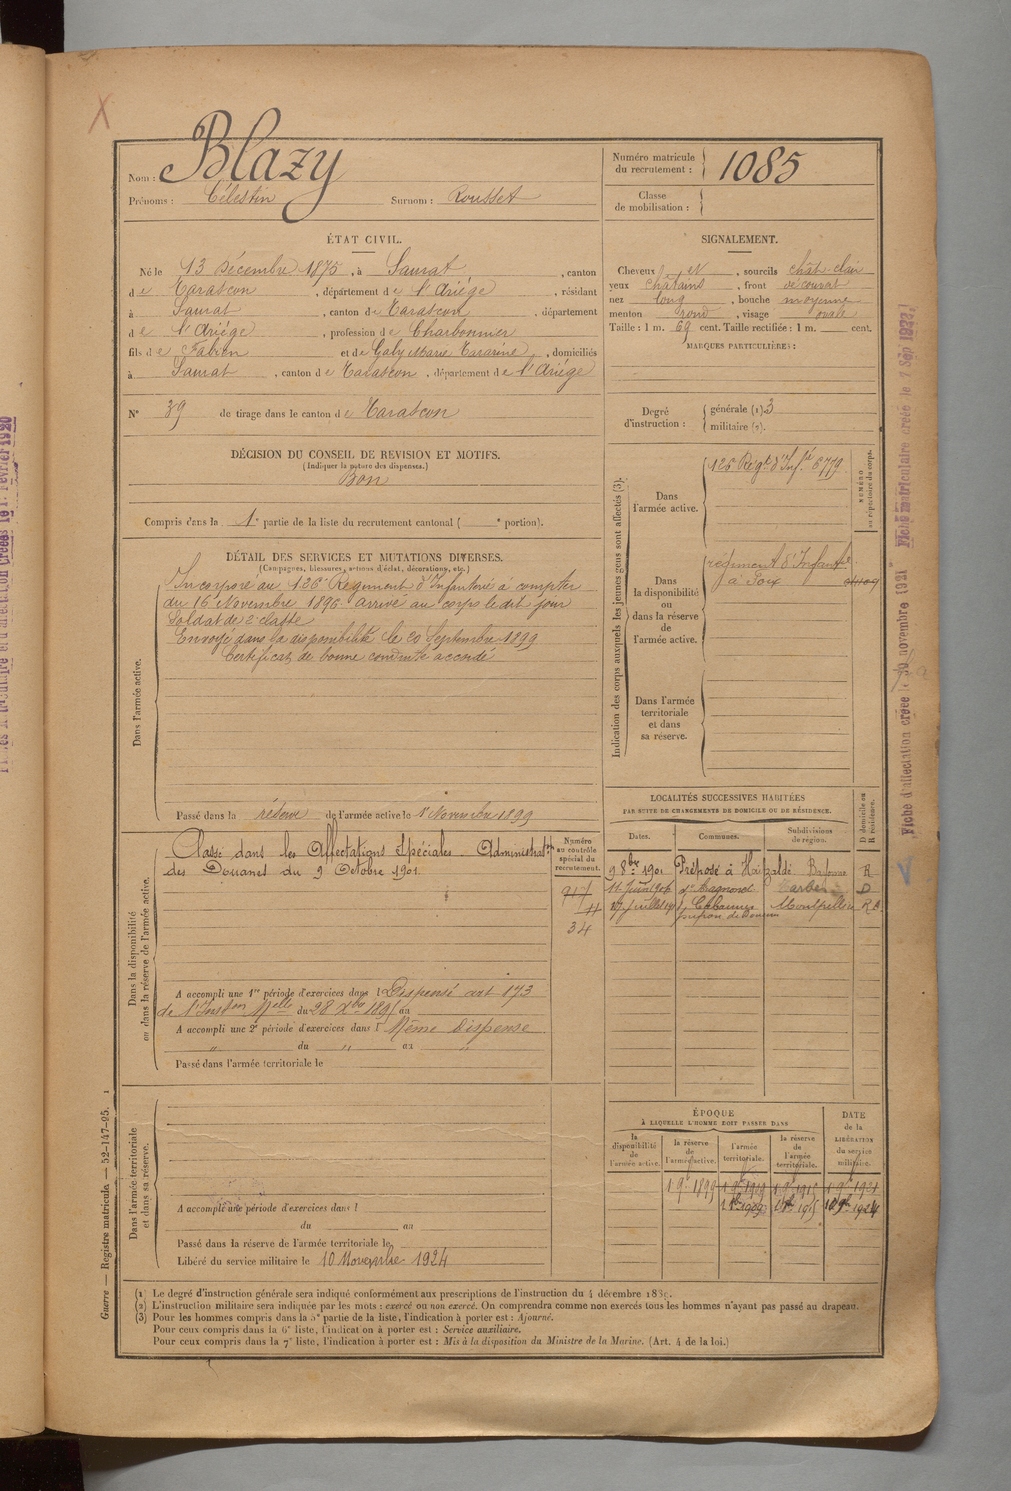 Nom : Blazy
Prénoms : Célestin Surnom : Rousset
Numéro matricule du recrutement : 1085
Classe de mobilisation :
ÉTAT CIVIL.
Né le 13 Décembre 1875, à Saurat, canton
de Tarascon, département de l'Ariège, résidant
à Saurat, canton de Tarascon, département
de l'Ariège, profession de Charbonnier
fils de Fabien et de Gaby Marie Tararine, domiciliés
à Saurat, canton de Tarascon, département de l'Ariège
N° 39 de tirage dans le canton de Tarascon
DÉCISION DU CONSEIL DE REVISION ET MOTIFS.
(Indiquer la nature des dispenses.)
Bon
Compris dans la 1e partie de la liste du recrutement cantonal ( e portion).
DÉTAIL DES SERVICES ET MUTATIONS DIVERSES.
(Campagnes, blessures, actions d'éclat, décorations, etc.)
Dans l'armée active.
Incorporé au 126e Régiment d'Infanterie à compter
du 16 Novembre 1896 arrivé au corps le dit jour
Soldat de 2e classe
Envoyé dans la disponibilité le 20 Septembre 1899
Certificat de bonne conduite accordé
Passé dans la réserve de l'armée active le 1er Novembre 1899
Dans la disponibilité ou dans la réserve de l'armée active.
Classé dans les Affectations Spéciales. Administration
des Douanes du 9 Octobre 1901
Numéro au contrôle spécial du recrutement.
917
11
34
A accompli une 1re période d'exercices dans l Dispensé art 173
de l'Inston Melle du 28 Xbre 1895 au
A accompli une 2e période d'exercices dans l Même Dispense
" du " au "
Passé dans l'armée territoriale le
Dans l'armée territoriale et dans sa réserve.
A accompli une période d'exercices dans l
du au
Passé dans la réserve de l'armée territoriale le
Libéré du service militaire le 10 Novembre 1924
SIGNALEMENT.
Cheveux et, sourcils chât-clair
yeux châtains, front découvert
nez long, bouche moyenne
menton rond, visage ovale
Taille : 1 m. 69 cent. Taille rectifiée : 1 m. cent.
MARQUES PARTICULIÈRES :
Degré d'instruction : générale (1) 3
militaire (2).
Indication des corps auxquels les jeunes gens sont affectés (3).
NUMÉRO au répertoire du corps.
Dans l'armée active.
126 Régt d'Infie 6779
Dans la disponibilité ou dans la réserve de l'armée active.
régiment d'Infanterie
à Foix
Dans l'armée territoriale et dans sa réserve.
LOCALITÉS SUCCESSIVES HABITÉES
PAR SUITE DE CHANGEMENTS DE DOMICILE OU DE RÉSIDENCE.
Dates. Communes. Subdivisions de région. D domicile ou R résidence.
9 8bre 1901 Préposé à Bayonne R
11 Juin 1906 Tarbes D
Juillet Cabannes Montpellier R
ÉPOQUE
À LAQUELLE L'HOMME DOIT PASSER DANS
la disponibilité de l'armée active. la réserve de l'armée active. l'armée territoriale. la réserve de l'armée territoriale.
DATE de la LIBÉRATION du service militaire.
1 9bre 1899
(1) Le degré d'instruction générale sera indiqué conformément aux prescriptions de l'instruction du 4 décembre 1889.
(2) L'instruction militaire sera indiquée par les mots : exercé ou non exercé. On comprendra comme non exercés tous les hommes n'ayant pas passé au drapeau.
(3) Pour les hommes compris dans la 5e partie de la liste, l'indication à porter est : Ajourné.
Pour ceux compris dans la 6e liste, l'indication à porter est : Service auxiliaire.
Pour ceux compris dans la 7e liste, l'indication à porter est : Mis à la disposition du Ministre de la Marine. (Art. 4 de la loi.)
Guerre — Registre matricule. — 52-147-95.
Fiche d'affectation créée le 30 novembre 1921
Fiche matriculaire créée le 1 Sep 1922